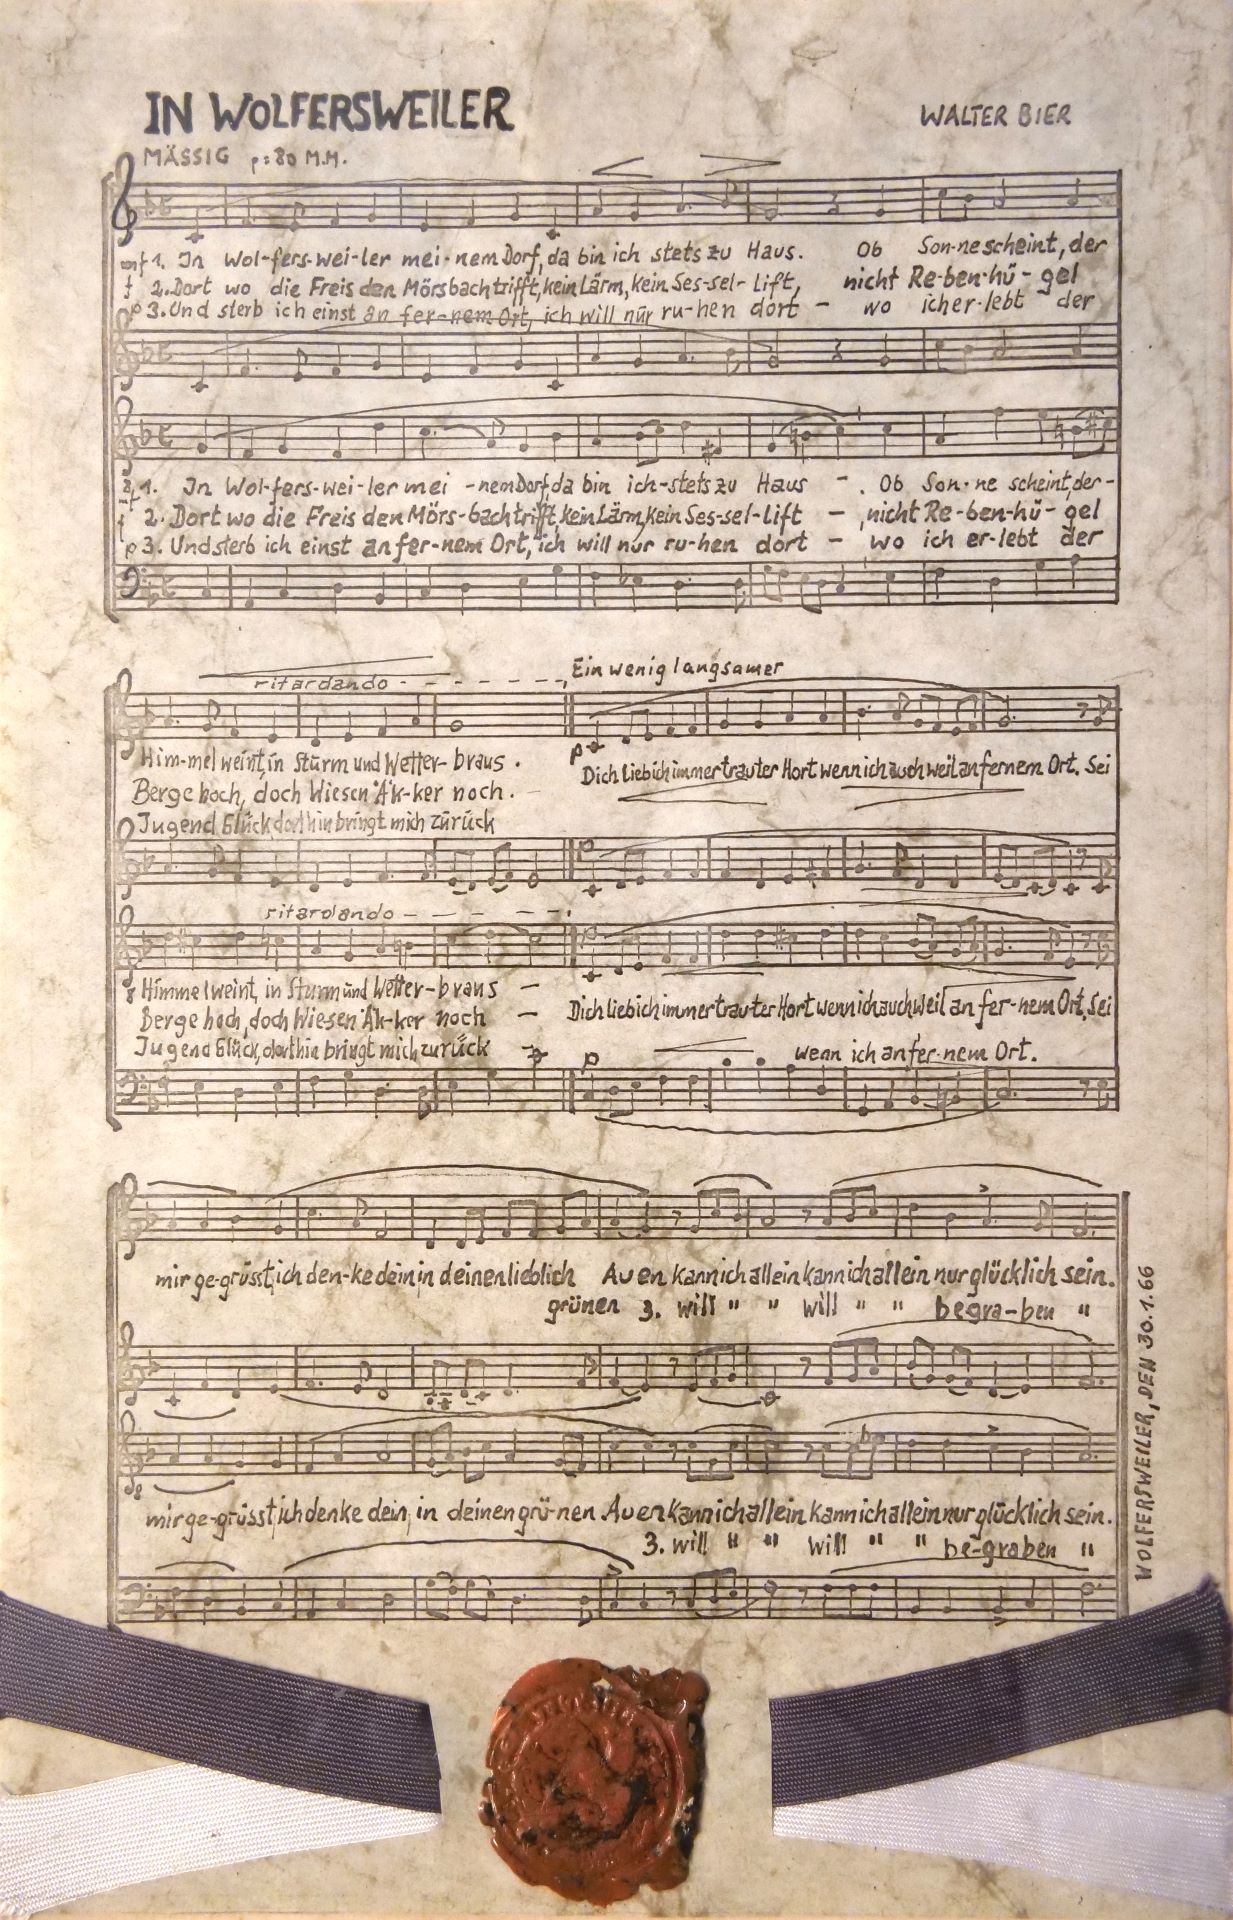 IN WOLFERSWEILER
WALTER BIER
MÄSSIG = 80 M.M.
mf 1. In Wol-fers-wei-ler mei-nem Dorf, da bin ich stets zu Haus. Ob Son-ne scheint, der
f 2. Dort wo die Freis den Mörsbach trifft, kein Lärm, kein Ses-sel-lift, nicht Re-ben-hü-gel
p 3. Und sterb ich einst an fer-nem Ort, ich will nur ru-hen dort - wo ich er-lebt der
1. In Wol-fers-wei-ler mei-nem Dorf, da bin ich-stets zu Haus - . Ob Son-ne scheint, der-
f 2. Dort wo die Freis den Mörs-bach trifft, kein Lärm, kein Ses-sel-lift -, nicht Re-ben-hü-gel
p 3. Und sterb ich einst an fer-nem Ort, ich will nur ru-hen dort - wo ich er-lebt der
Ein wenig langsamer
ritardando
Him-mel weint, in Sturm und Wetter-braus.
p Dich lieb ich immer trauter Hort wenn ich auch weil an fernem Ort. Sei
Berge hoch, doch Wiesen Äk-ker noch.
Jugend Glück dorthin bringt mich zurück
ritardando
8 Himmel weint, in Sturm und Wetter-braus -
Dich lieb ich immer trau-ter Hort wenn ich auch weil an fer-nem Ort, sei
Berge hoch, doch Wiesen Äk-ker noch -
Jugend Glück, dorthin bringt mich zurück - p
p wenn ich an fer-nem Ort.
mir ge-grüsst, ich den-ke dein, in deinen lieblich Auen kann ich allein kann ich allein nur glücklich sein.
grünen 3. will " " will " " begra-ben "
8
mir ge-grüsst, ich denke dein, in deinen grü-nen Auen kann ich allein kann ich allein nur glücklich sein.
3. will " " will " " be-graben "
WOLFERSWEILER, DEN 30.1.66